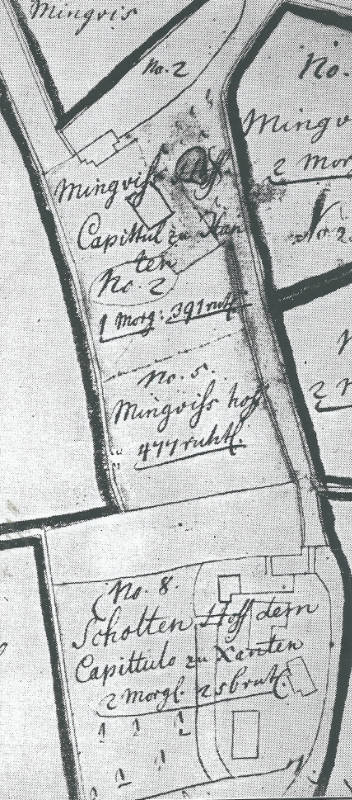 Mingvis
No. 2
No.
Mingv
2 Mor
No 2.
Mingviss Hoff
Capittul zu Xan
ten
No. 2
1 Morg: 391 ruht
No. 5.
Mingviss hoff
477 ruht.
2
No. 8.
Scholten Hoff dem
Capittulo zu Xanten
2 Morgl. 258 rut.